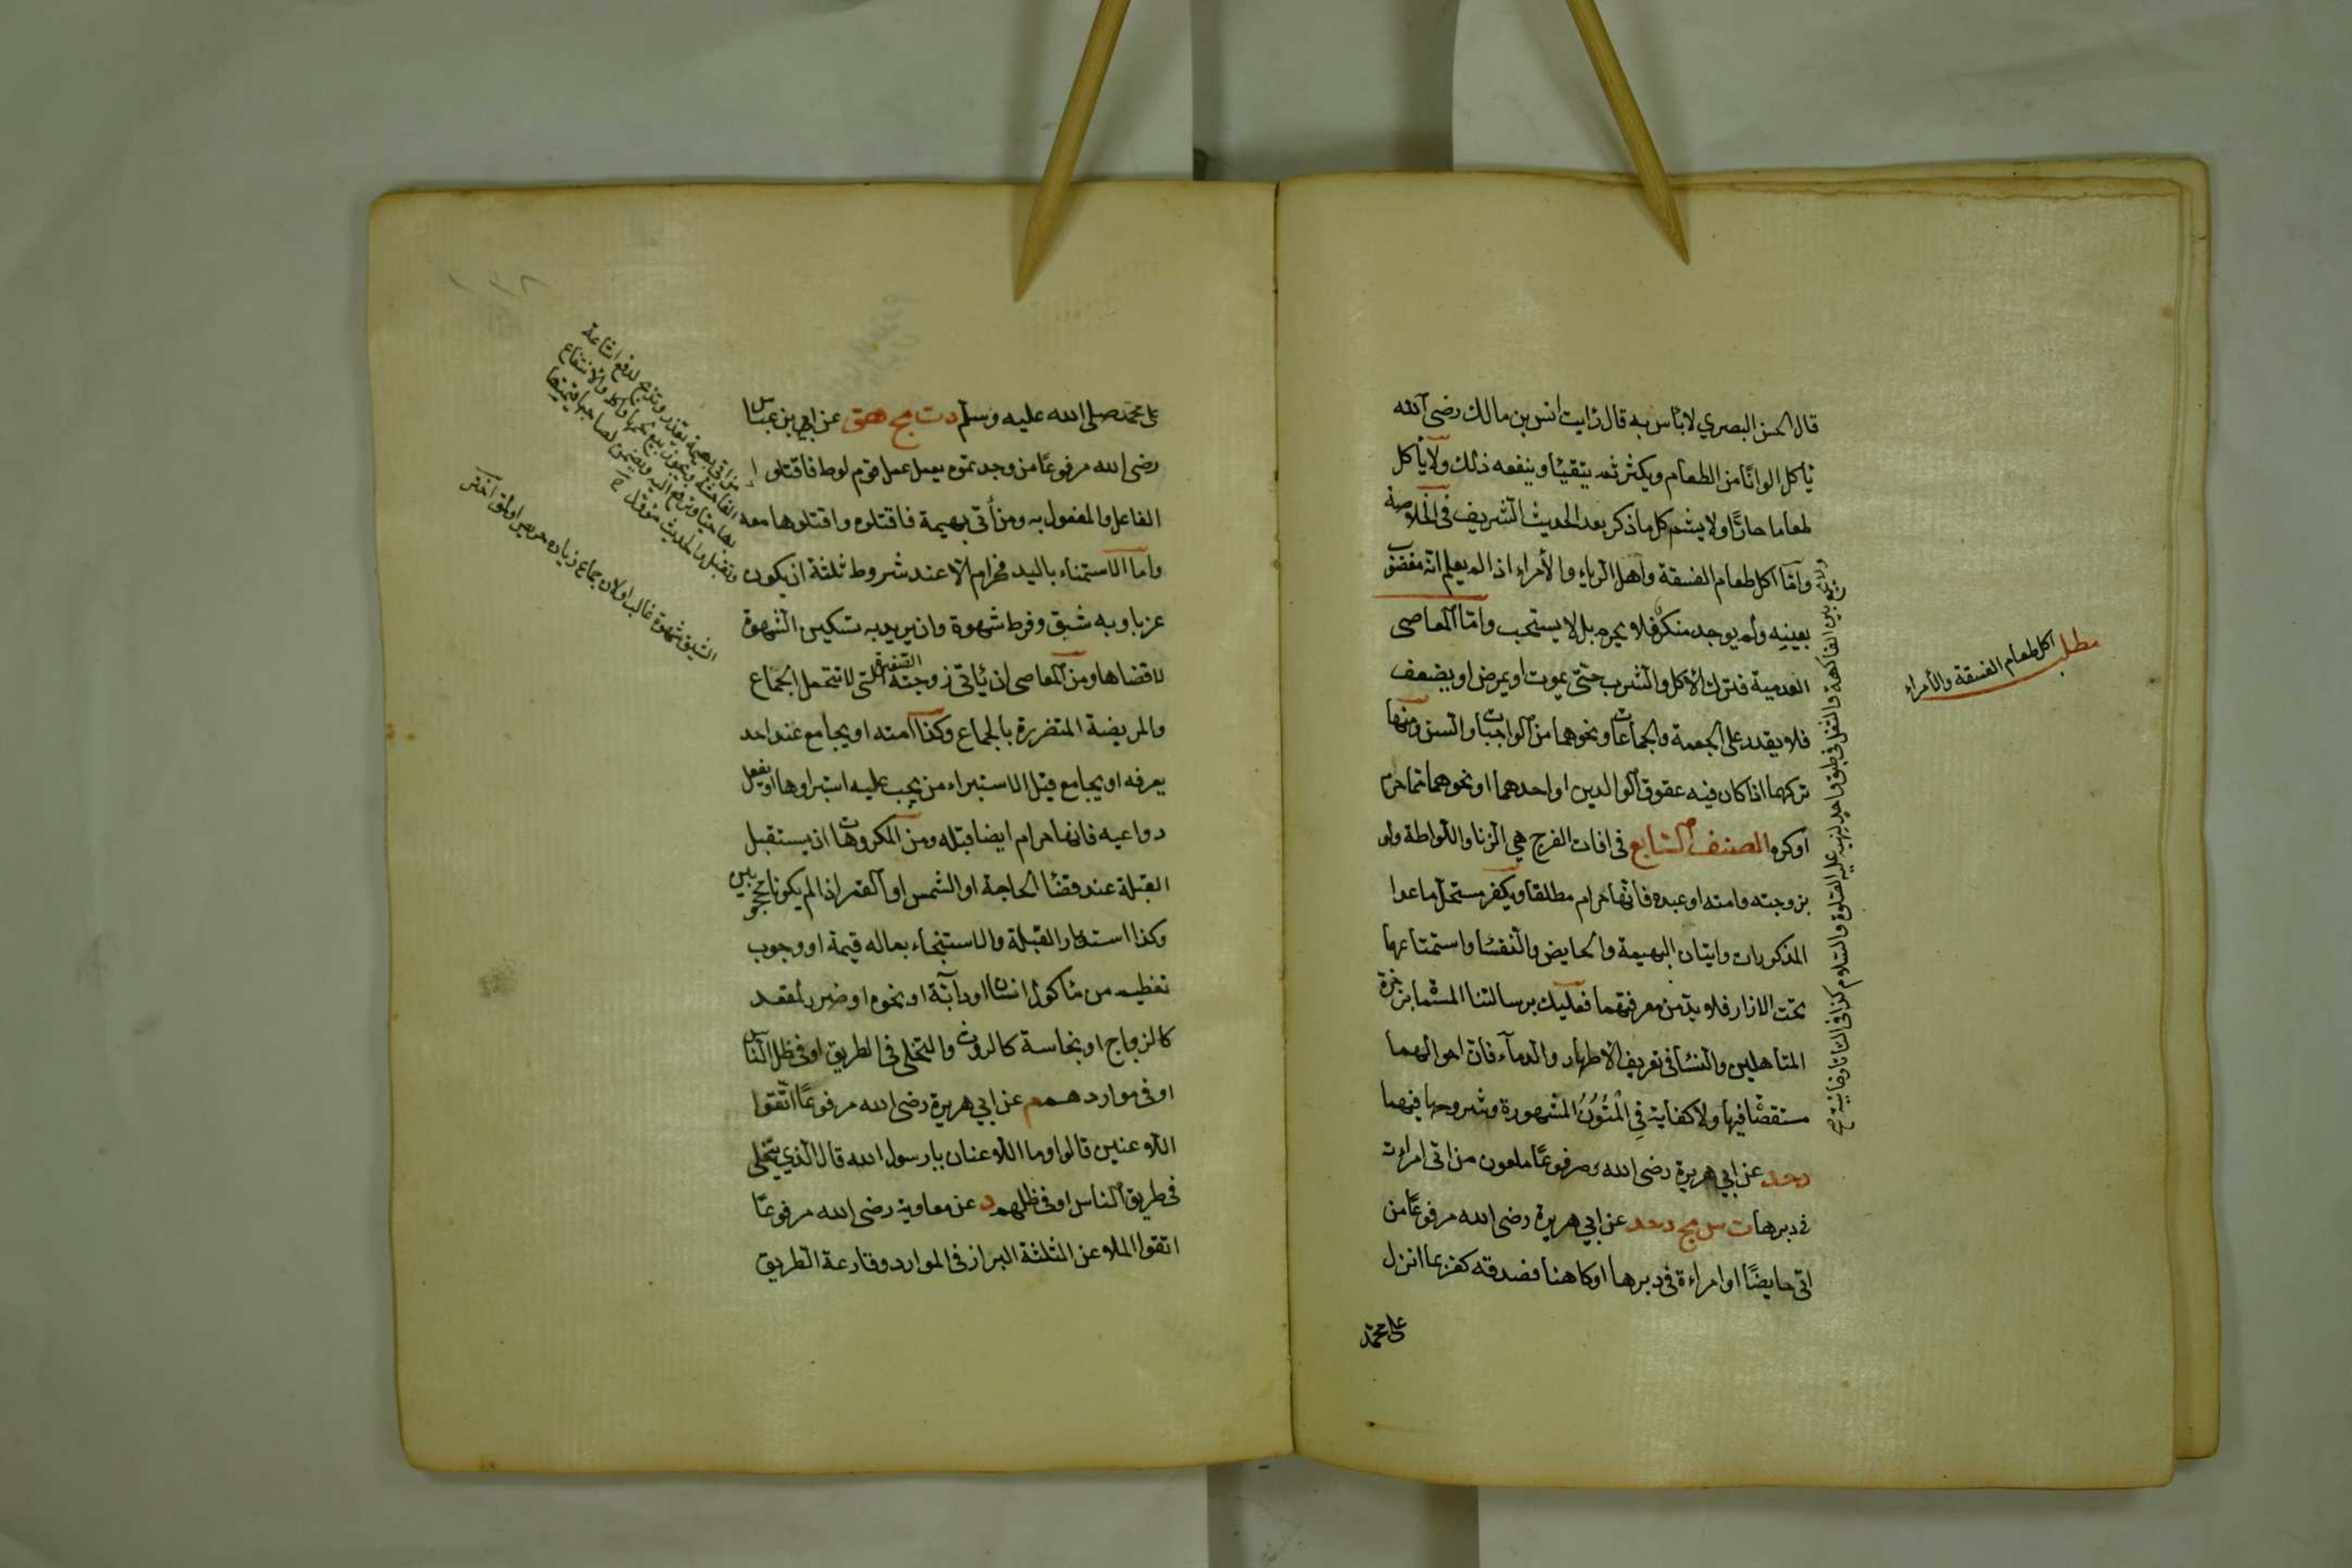 قال الحسن البصري لا بأس به قال رايت انس بن مالك رضى الله
يأكل الوانا من الطعام ويكثر ثم يتقيأ وينفعه ذلك ولا يأكل
طعاما حارا ولا يشم كل ما ذكر بعد الحديث الشريف فى الخلاصة
واما اكل طعام الفسقة واهل الرياء والأمراء اذا لم يعلم انه مغصوب
بعينه ولم يوجد منكر فلا يحرم بل لا يستحب واما المعاصى
العدمية فترك الأكل والشرب حتى يموت او يمرض او يضعف
فلا يقدر على الجمعة والجماعات ونحوهما من الواجبات والسنن ومنها
تركهما اذا كان فيه عقوق الوالدين او احدهما او نحوهما مما حرم
او كره الصنف السابع فى افات الفرج هي الزنا واللواطة ولو
بزوجته وامته او عبده فانها حرام مطلقا ويكفر مستحل ما عدا
المذكورات واتيان البهيمة والحايض والنفسا واستمتاعها
تحت الازار فلا بد من معرفتهما فعليك برسالتنا المسماة بذخرة
المتأهلين والنسا فى تعريف الأطهار والدماء فان احوالهما
مستقصا فيها ولا كفاية فِي المُتُون المشهورة وشروحها فيهما
دحد عن ابي هريرة رضى الله مرفوعًا ملعون من اتى امراءة
فى دبرها ت س مج دحد عن ابي هريرة رضى الله مرفوعًا من
اتى حايضًا او امراءة فى دبرها او كاهنا فصدقه كفر بما انزل
على محمد
مطلب
اكل طعام الفسقة والأمراء
يجمع بين الفاكهة والثفل فى طبق واحد لنهيه عليه الصلوة والسلام كذا فى التاتارخانية
١٣٨
على محمد صلى الله عليه وسلم دت مج هق عن ابن عباس
رضى الله مرفوعًا من وجدتموه يعمل عمل قوم لوط فاقتلوا
الفاعل والمفعول به ومن أتى بهيمة فاقتلوه واقتلوها معه
واما الاستمناء باليد فحرام الا عند شروط ثلثة ان يكون
عزبا وبه شبق وفرط شهوة وان يريد به تسكين الشهوة
لا قضاها ومن المعاصى ان يأتى زوجته الصغيرة التى لا تتحمل الجماع
والمريضة المتضررة بالجماع وكذا امته او يجامع عند احد
يعرفه او يجامع قبل الاستبراء من يجب عليه استبراوها او يفعل
دواعيه فانها حرام ايضا قبله ومن المكروهات ان يستقبل
القبلة عند قضا الحاجة او الشمس او القمر اذا لم يكونا محجوبين
وكذا استدبار القبلة والاستنجاء بماله قيمة او وجوب
تعظيم من مأكول انسان او دابة او نحوه او ضرر لمقعد
كالزجاج او نجاسة كالروث والتخلى فى الطريق او فى ظل الناس
او فى مواردهم م عن ابي هريرة رضى الله مرفوعًا اتقوا
اللاعنين قالوا وما اللاعنان يا رسول الله قال الذي يتخلى
فى طريق الناس او فى ظلهم د عن معاوية رضى الله مرفوعًا
اتقوا الملاعن الثلثة البراز فى الموارد وقارعة الطريق
من اتى بهيمة يعذر وتذبح لدفع اشاعة
الفاحشة ويجوز بيع لحمها واكله والانتفاع
بها حيا ويرجع اليه ويضمن لصاحبها قيمتها
الشبق شهوة غالب اولان جماع زياده حريص اولمق اختر